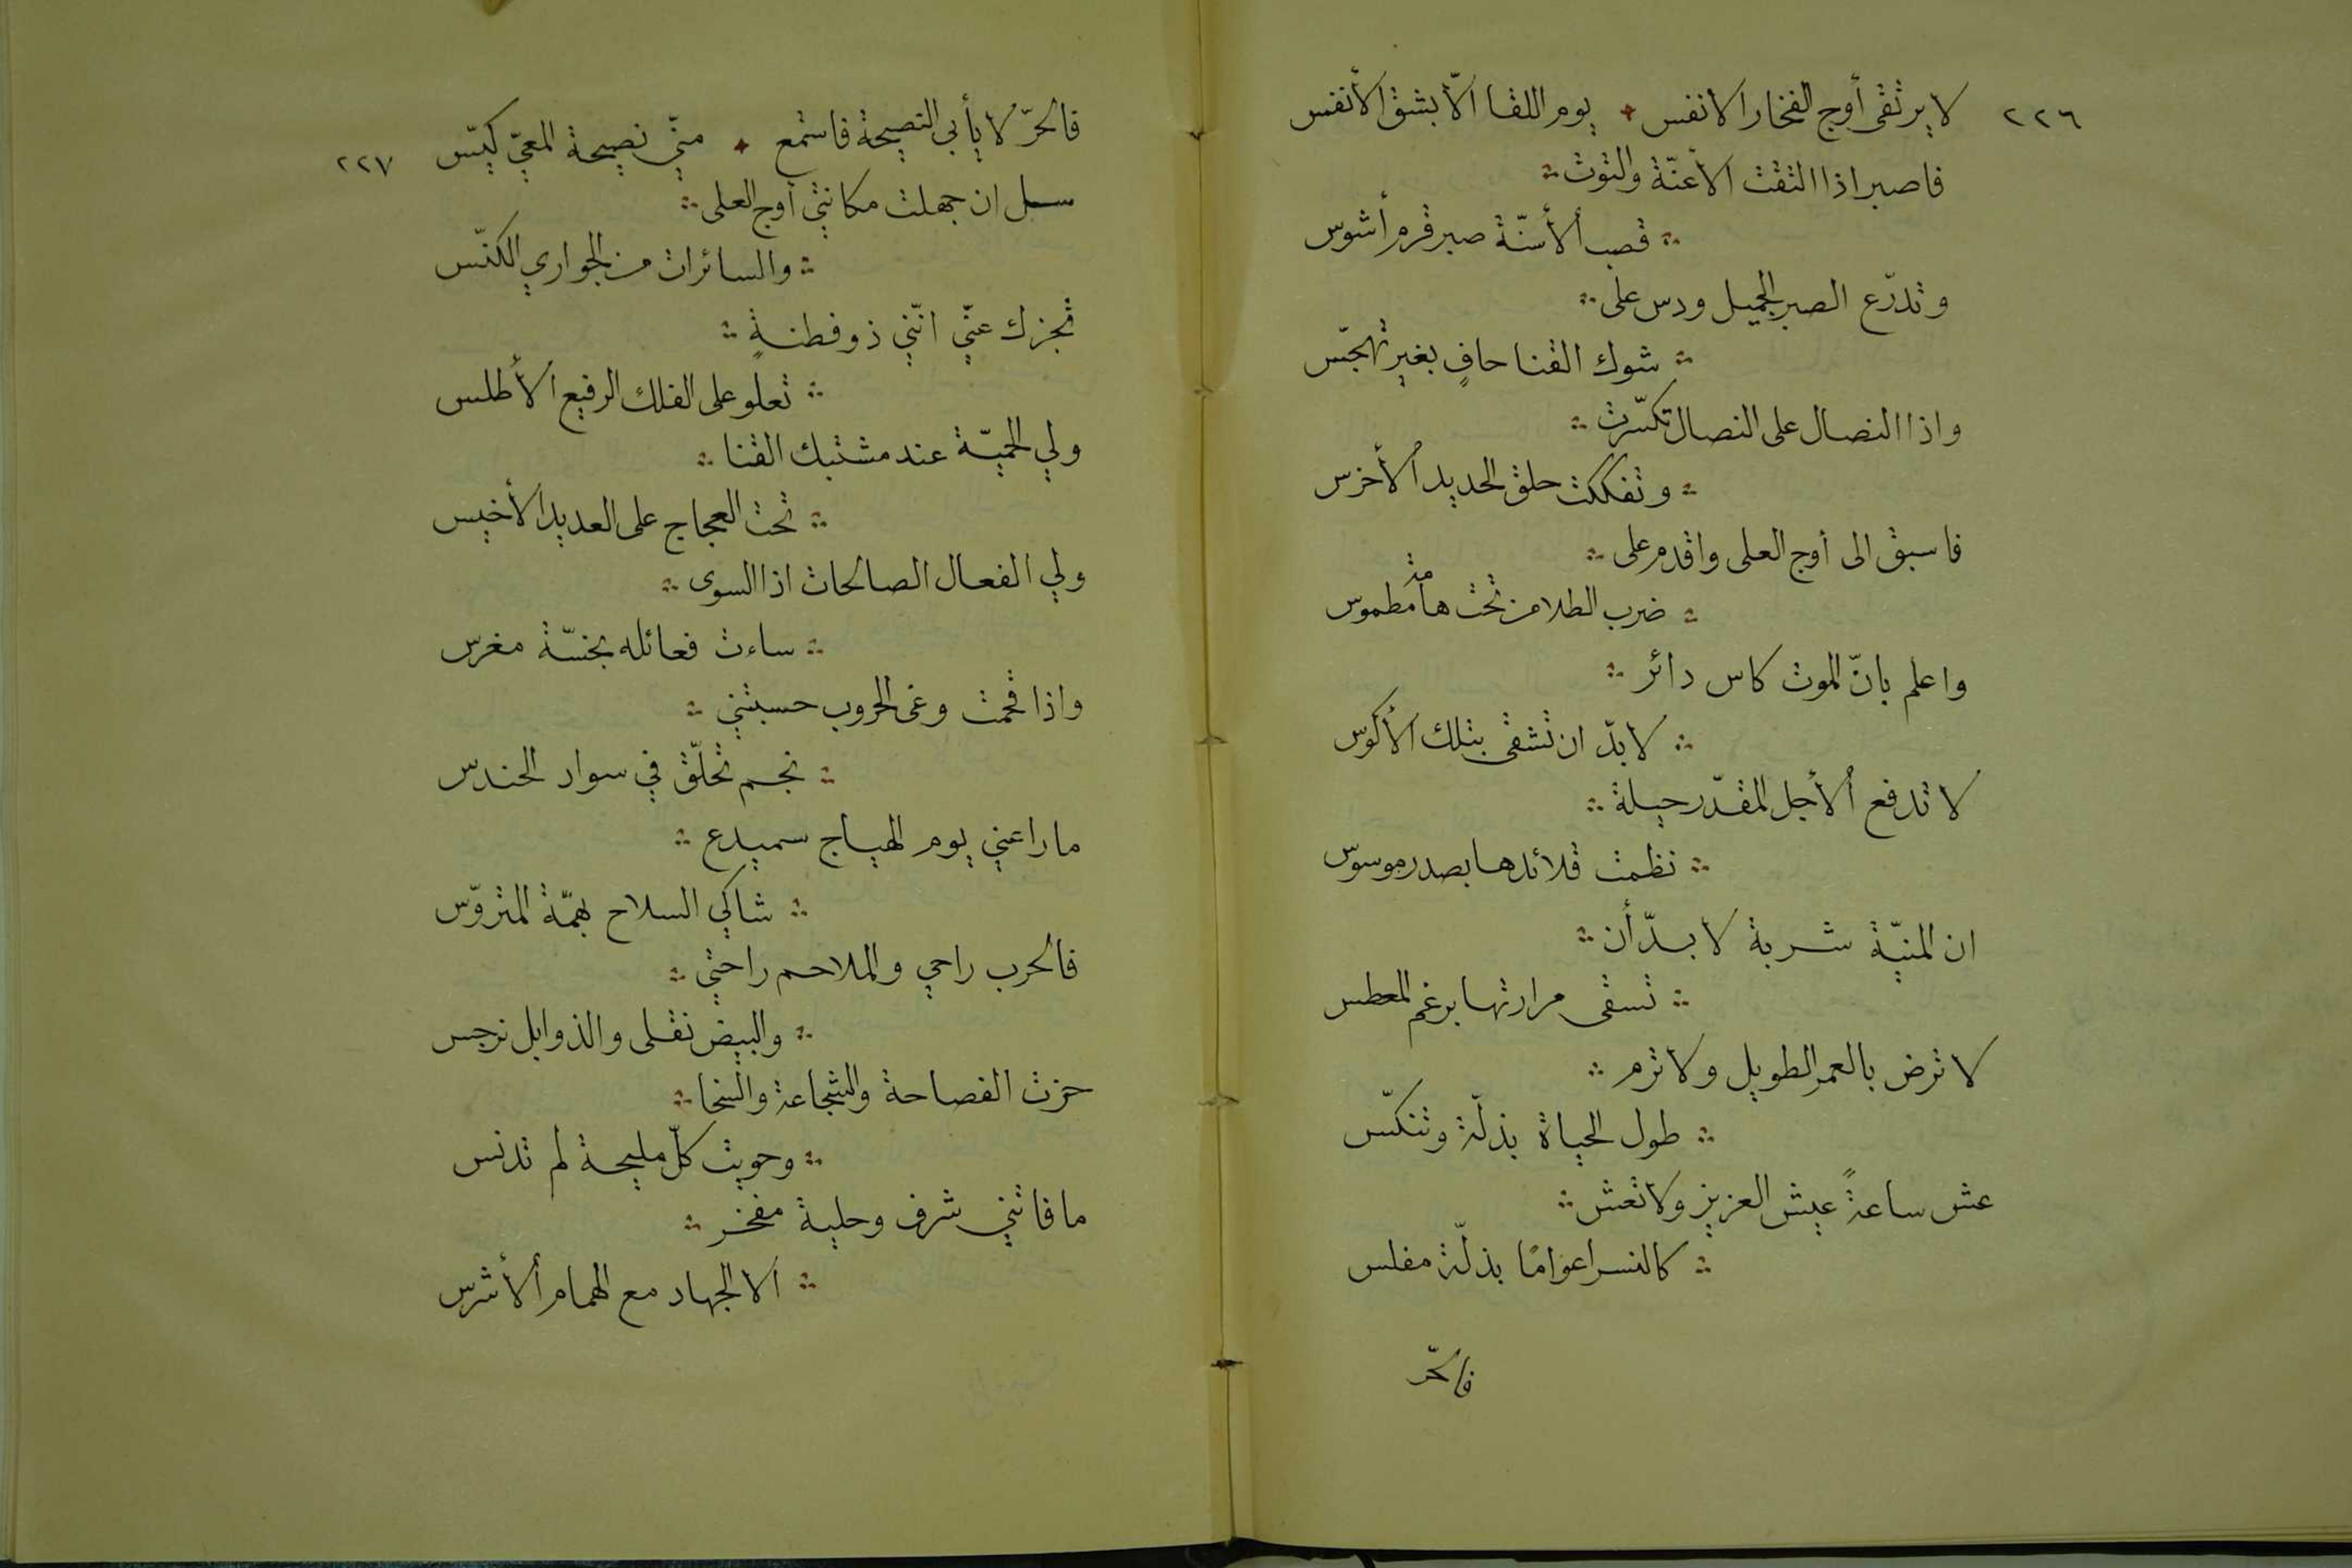 ٢٢٦
لا يرتقى أوج الفخار الانفس ٠ يوم اللقا الّا بشق الأنفس
فاصبر اذا التقت الأعنّة والتوت
قصب ألأسنّة صبر قرم أشوس
وتدرّع الصبر الجميل ودس على
شوك القنا حافٍ بغير تهجّس
واذا النصال على النصال تكسّرت
وتفككت حلق الحديد ألأخرس
فاسبق الى أوج العلى واقدم على
ضرب الطلا من تحت هامة مطموس
واعلم بانّ الموت كاس دائر
لا بدّ ان تشقى بتلك ألأكوس
لا تدفع ألأجل المقدّر حيلة
نظمت قلائدها بصدر موسوس
ان المنيّة شربة لا بدّ أن
تسقى مرارتها برغم المعطس
لا ترض بالعمر الطويل ولا ترم
طول الحياة بذلّة وتنكّس
عش ساعةً عيش العزيز ولا تعش
كالنسر اعوامًا بذلّة مفلس
فالحّر
٢٢٧
فالحرّ لا يأبي النصيحة فاستمع ٠ منّي نصيحة المعيّ كيّس
سل ان جهلت مكانتي أوج العلى
والسائرات من الجواري الكنّس
تجزك عنّي انّني ذو فطنةٍ
تعلو على الفلك الرفيع ألأطلس
ولي الحميّة عند مشتبك القنا
تحت العجاج على العديد ألأخيس
ولي الفعال الصالحات اذا السوى
ساءت فعائله بخسّة مغرس
واذا قحمت وغى الحروب حسبتني
نجم تحلّق في سواد الحندس
ما راعني يوم الهياج سميدع
شاكي السلاح بهمّة المتروّس
فالحرب راحي والملاحم راحتي
والبيض نقلى والذوابل نرجس
حزت الفصاحة والشجاعة والسخا
وحويت كلّ مليحة لم تدنس
ما فاتني شرف وحلية مفخر
الا الجهاد مع الهمام ألأشرس